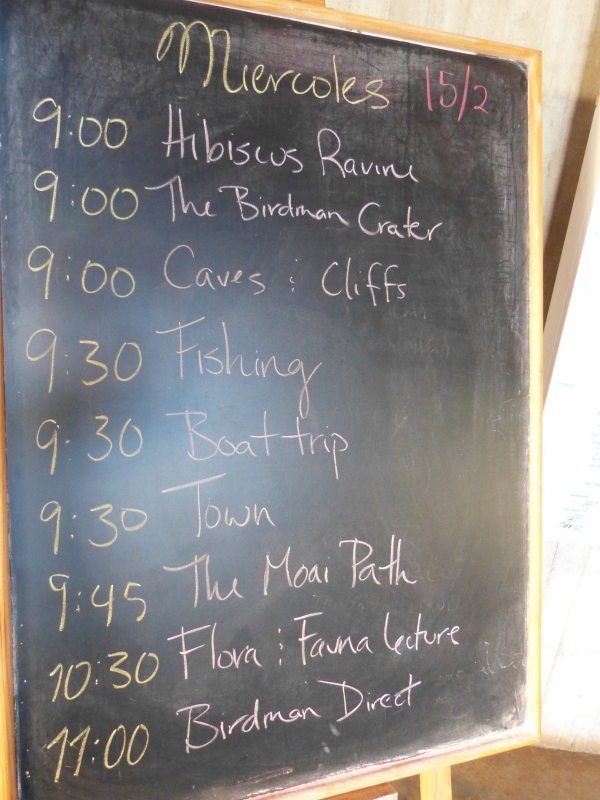 Miercoles 15/2
9:00 Hibiscus Ravine
9:00 The Birdman Crater
9:00 Caves : Cliffs
9:30 Fishing
9:30 Boat trip
9:30 Town
9:45 The Moai Path
10:30 Flora : Fauna lecture
11:00 Birdman Direct